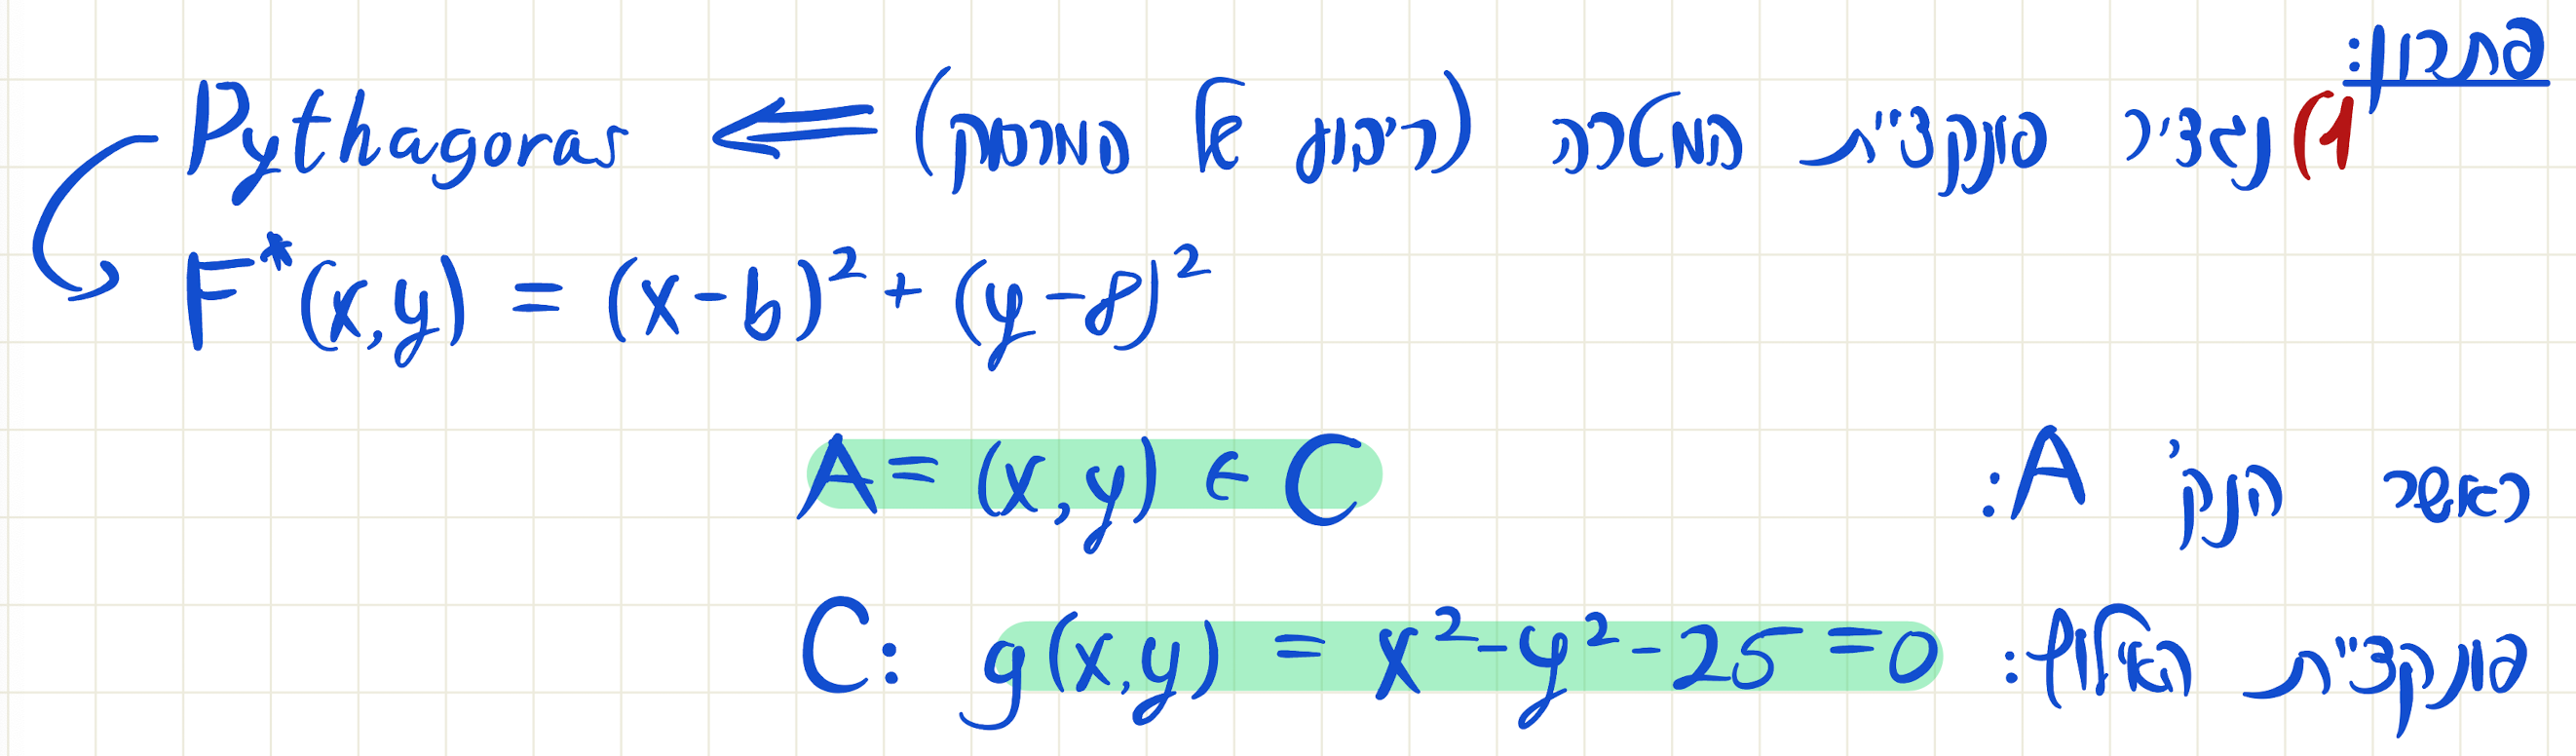 פתרון:
1) נגדיר פונקציית המטרה (ריבוע של המרחק) ⟸ Pythagoras
F*(x,y) = (x-6)² + (y-8)²
כאשר הנק' A: A = (x,y) ∈ C
פונקציית האילוץ: C: g(x,y) = x²-y²-25=0